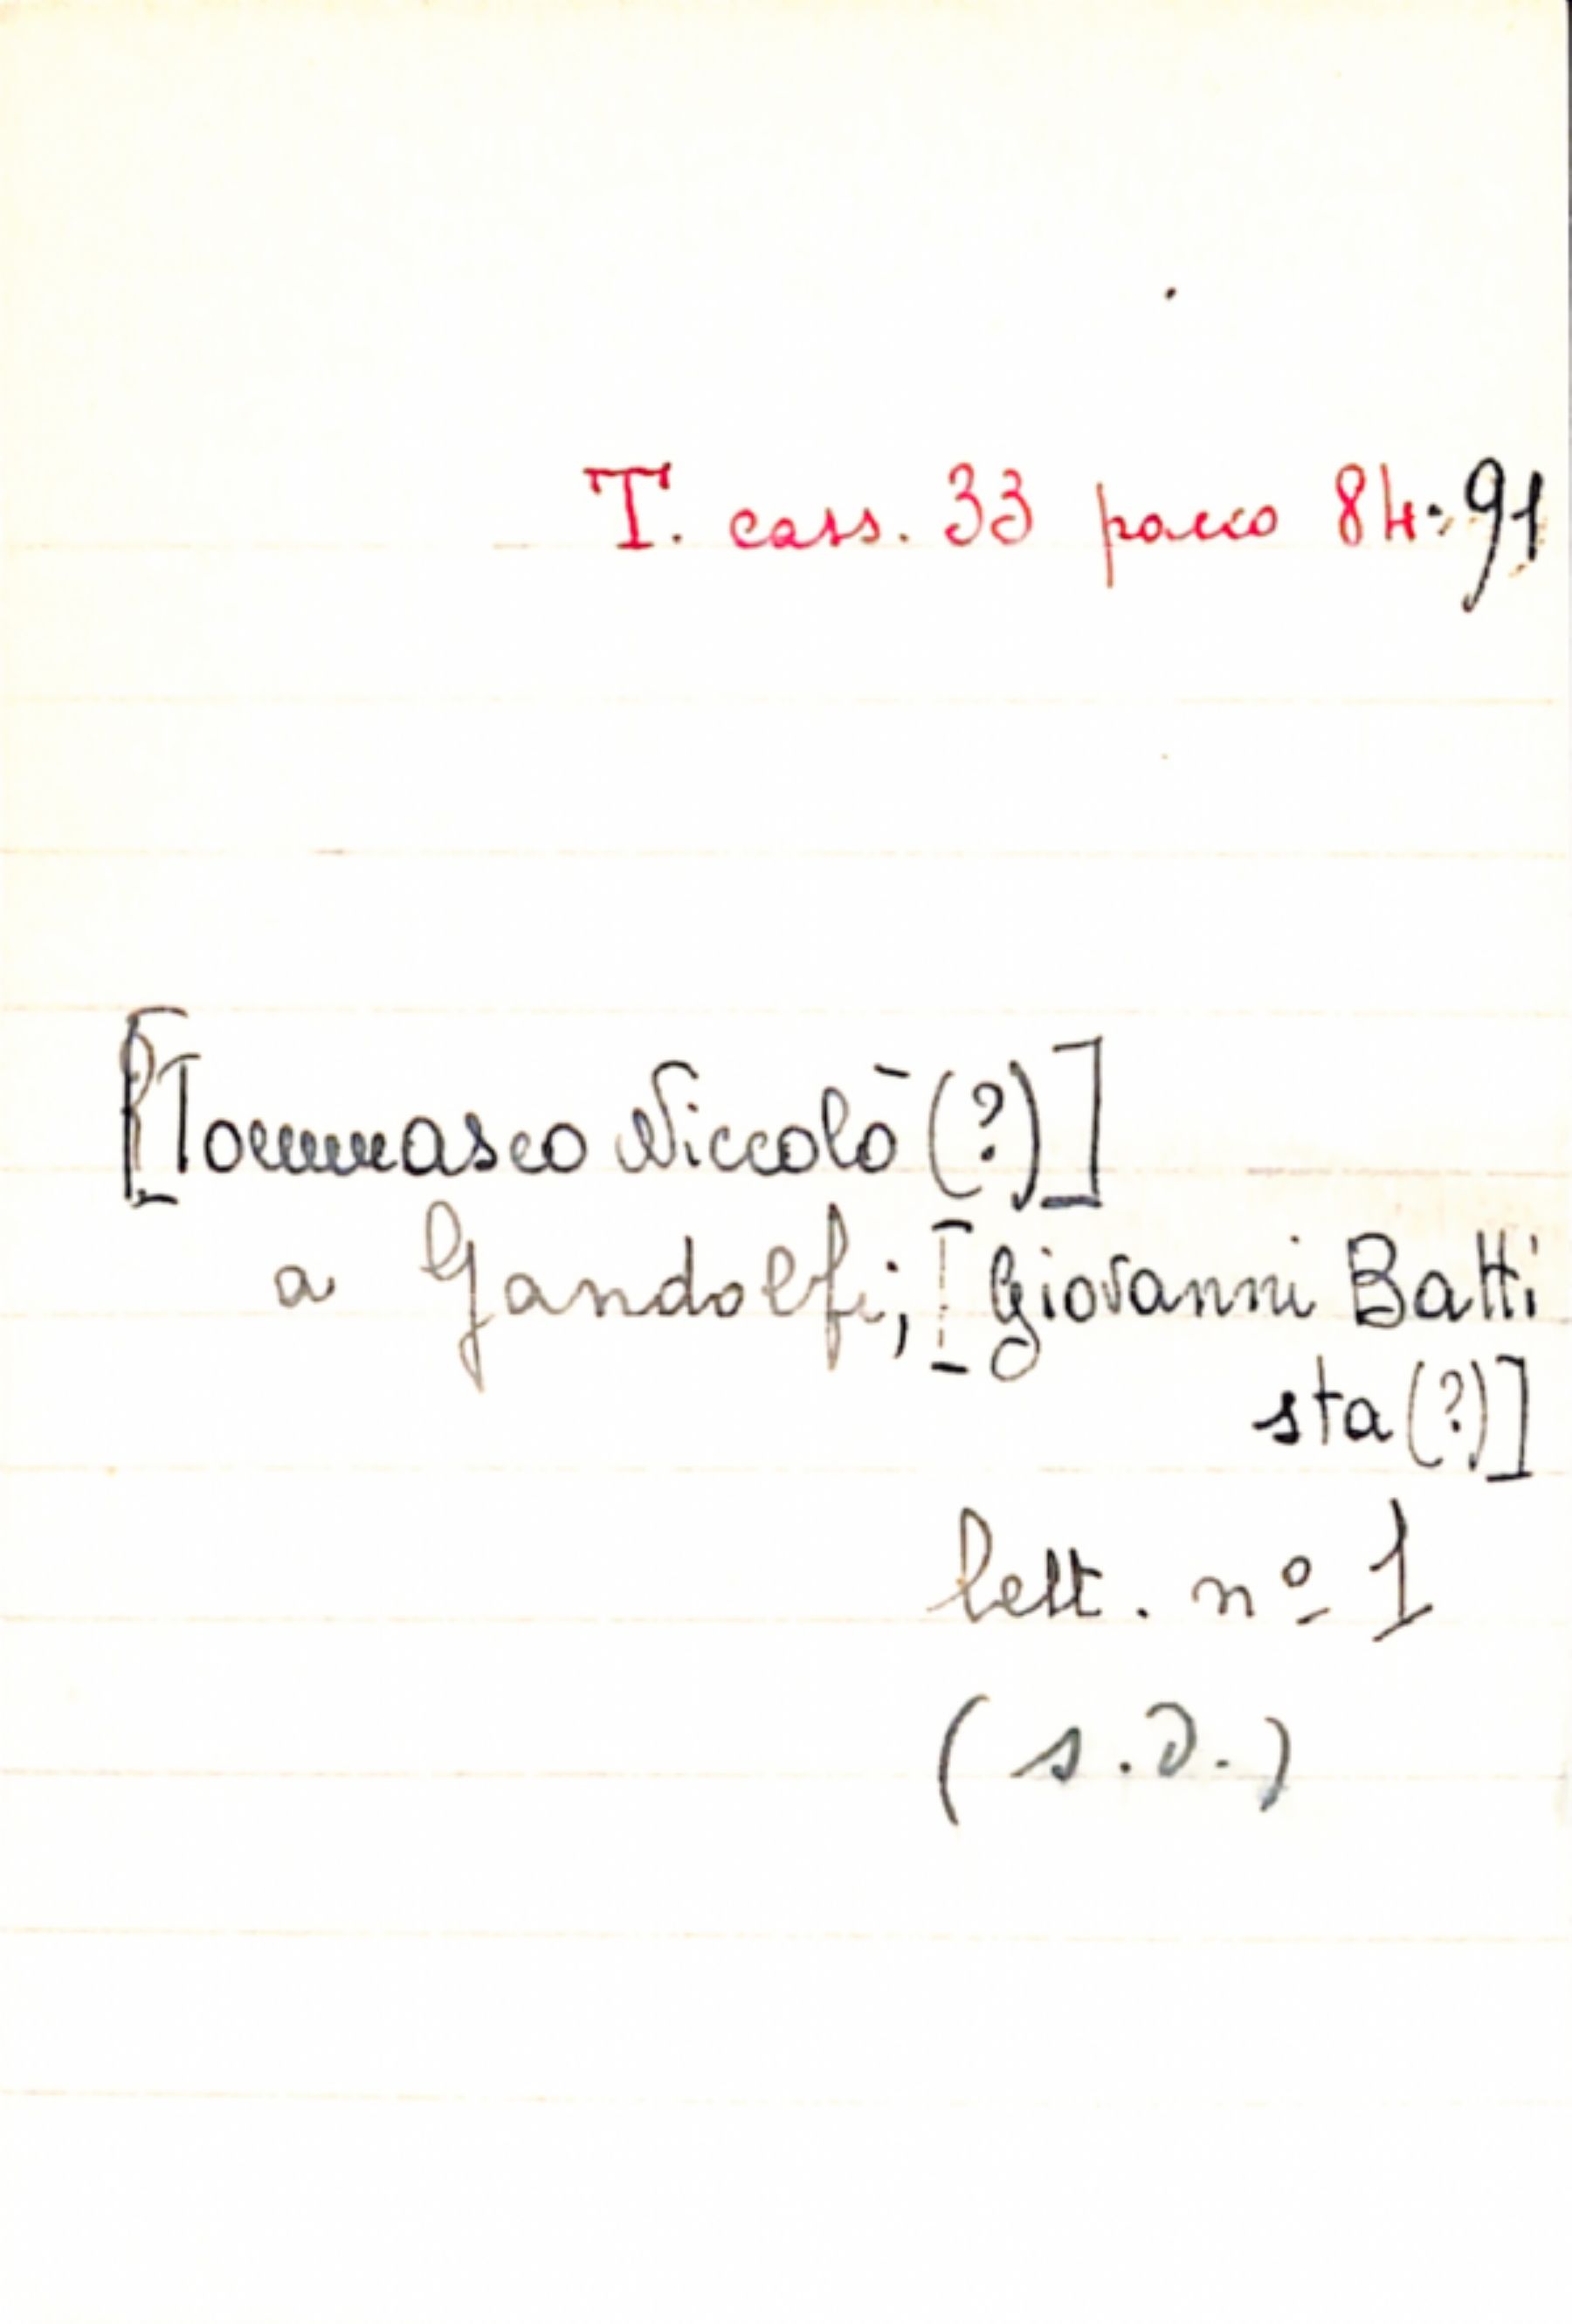 T. cass. 33 pacco 84.91
[Tommaseo Niccolò (?)]
a Gandolfi, [Giovanni Batti
sta (?)]
lett. nº 1
(s.d.)